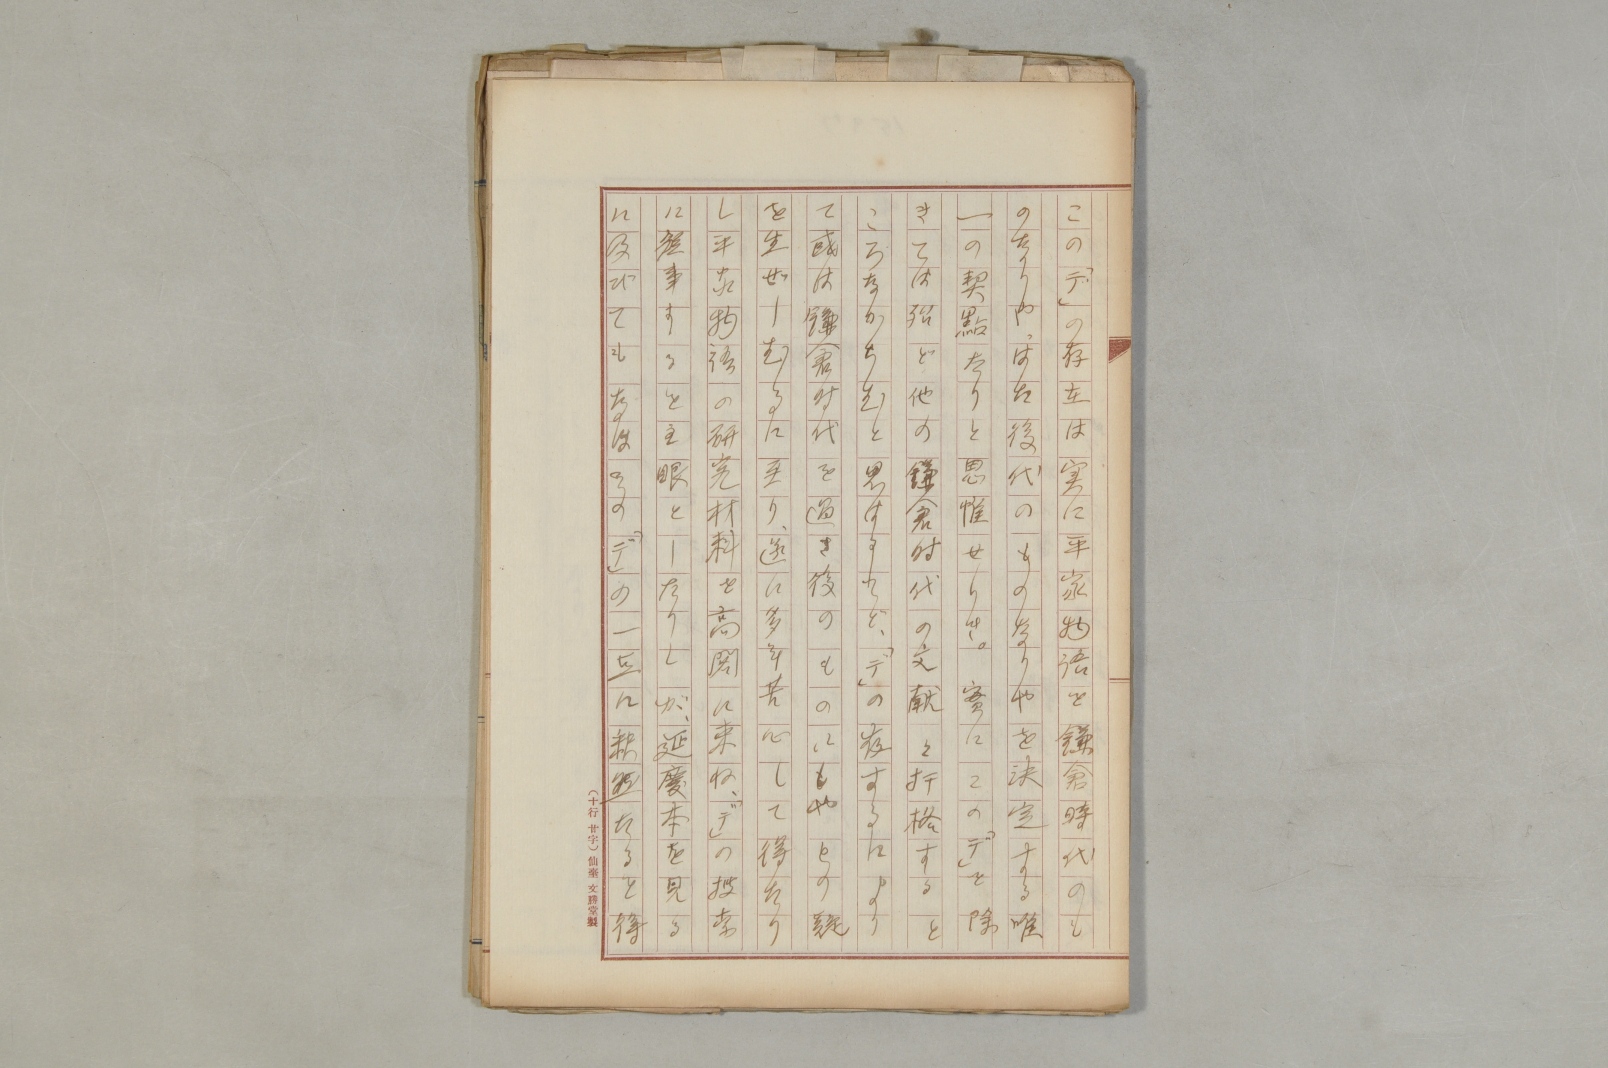 この「デ」の存在は実に平家物語を鎌倉時代のも
のなりや、はた後代のものなりやを決定する唯
一の契點なりと思惟せりき。實にこの「デ」を除
きては殆ど他の鎌倉時代の文献と扞格すると
ころなからむと思はるれど、「デ」の存するにより
て或は鎌倉時代を過き後のものにもやとの疑
を生ぜしむるに至り、遂に多年苦心して得たり
し平家物語の研究材料を高閣に束ね、「デ」の捜索
に従事するを主眼としたりしが、延慶本を見る
に及びてもなほその「デ」の一点に釈然たるを得
(十行廿字) 仙臺 文勝堂製